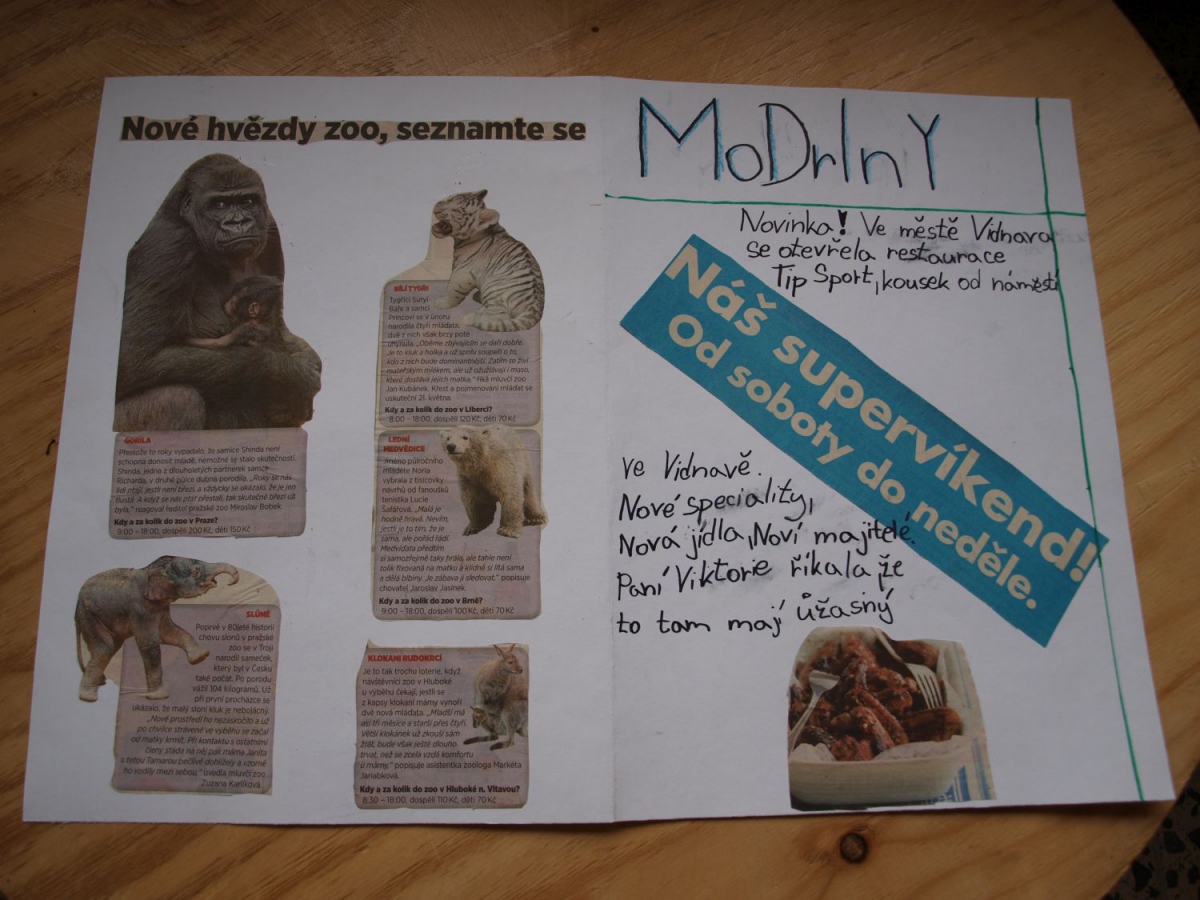 Nové hvězdy zoo, seznamte se
GORILA
Přestože to roky vypadalo, že samice Shinda není
schopna donosit mládě, nemožné se stalo skutečností.
Shinda, jedna z dlouholetých partnerek samce
Richarda, v druhé půlce dubna porodila. „Roky se nás
lidi ptají, jestli není březí, a vždycky se ukázalo, že je jen
tlustá. A když se nás ptát přestali, tak skutečně březí už
byla,“ reagoval ředitel pražské zoo Miroslav Bobek.
Kdy a za kolik do zoo v Praze?
9:00 – 18:00, dospělí 200 Kč, děti 150 Kč
SLŮNĚ
Poprvé v 80leté historii
chovu slonů v pražské
zoo se v Troji
narodil sameček,
který byl v Česku
také počat. Po porodu
vážil 104 kilogramů. Už
při první procházce se
ukázalo, že malý sloní kluk je nebojácný.
„Nové prostředí ho nezaskočilo a už
po chvilce strávené ve výběhu se začal
od matky krmit. Při kontaktu s ostatními
členy stáda na něj pak máma Janita
s tetou Tamarou bedlivě dohlížely a vzorně
ho vodily mezi sebou,“ uvedla mluvčí zoo
Zuzana Karlíková.
BÍLÍ TYGŘI
Tygřici Suryi
Baře a samci
Princovi se v únoru
narodila čtyři mláďata,
dvě z nich však brzy poté
uhynula. „Oběma zbývajícím se daří dobře.
Je to kluk a holka a už spolu soupeří o to,
kdo z nich bude dominantnější. Zatím se živí
mateřským mlékem, ale už ožužlávají i maso,
které dostává jejich matka,“ říká mluvčí zoo
Jan Kubánek. Křest a pojmenování mláďat se
uskuteční 21. května.
Kdy a za kolik do zoo v Liberci?
8:00 – 18:00, dospělí 120 Kč, děti 70 Kč
LEDNÍ
MEDVĚDICE
Jméno půlročního
mláděte Noria
vybrala z tisícovky
návrhů od fanoušků
tenistka Lucie
Šafářová. „Malá je
hodně hravá. Nevím,
jestli je to tím, že je
sama, ale pořád řádí.
Medvíďata předtím
si samozřejmě taky hrála, ale tahle není
tolik fixovaná na matku a klidně si lítá sama
a dělá blbiny. Je zábava ji sledovat,“ popisuje
chovatel Jaroslav Jasínek.
Kdy a za kolik do zoo v Brně?
9:00 – 18:00, dospělí 100 Kč, děti 70 Kč
KLOKANI RUDOKRCÍ
Je to tak trochu loterie, když
návštěvníci zoo v Hluboké
u výběhu čekají, jestli se
z kapsy klokaní mámy vynoří
dvě nová mláďata. „Mladší má
asi tři měsíce a starší přes čtyři.
Větší klokánek už zkouší sám
žrát, bude však ještě dlouho
trvat, než se zcela vzdá komfortu
u mámy,“ popisuje asistentka zoologa Markéta
Jariabková.
Kdy a za kolik do zoo v Hluboké n. Vltavou?
8:30 – 18:00, dospělí 110 Kč, děti 70 Kč
MoDrInY
Novinka! Ve městě Vidnava
se otevřela restaurace
Tip Sport, kousek od náměstí
Náš supervíkend!
Od soboty do neděle.
ve Vidnavě.
Nové speciality,
Nová jídla, Noví majitelé.
Paní Viktorie říkala že
to tam mají úžasný